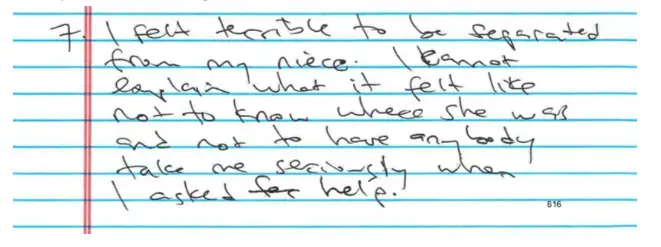 7. I felt terrible to be separated
from my niece. I cannot
explain what it felt like
not to know where she was
and not to have anybody
take me seriously when
I asked for help.
616